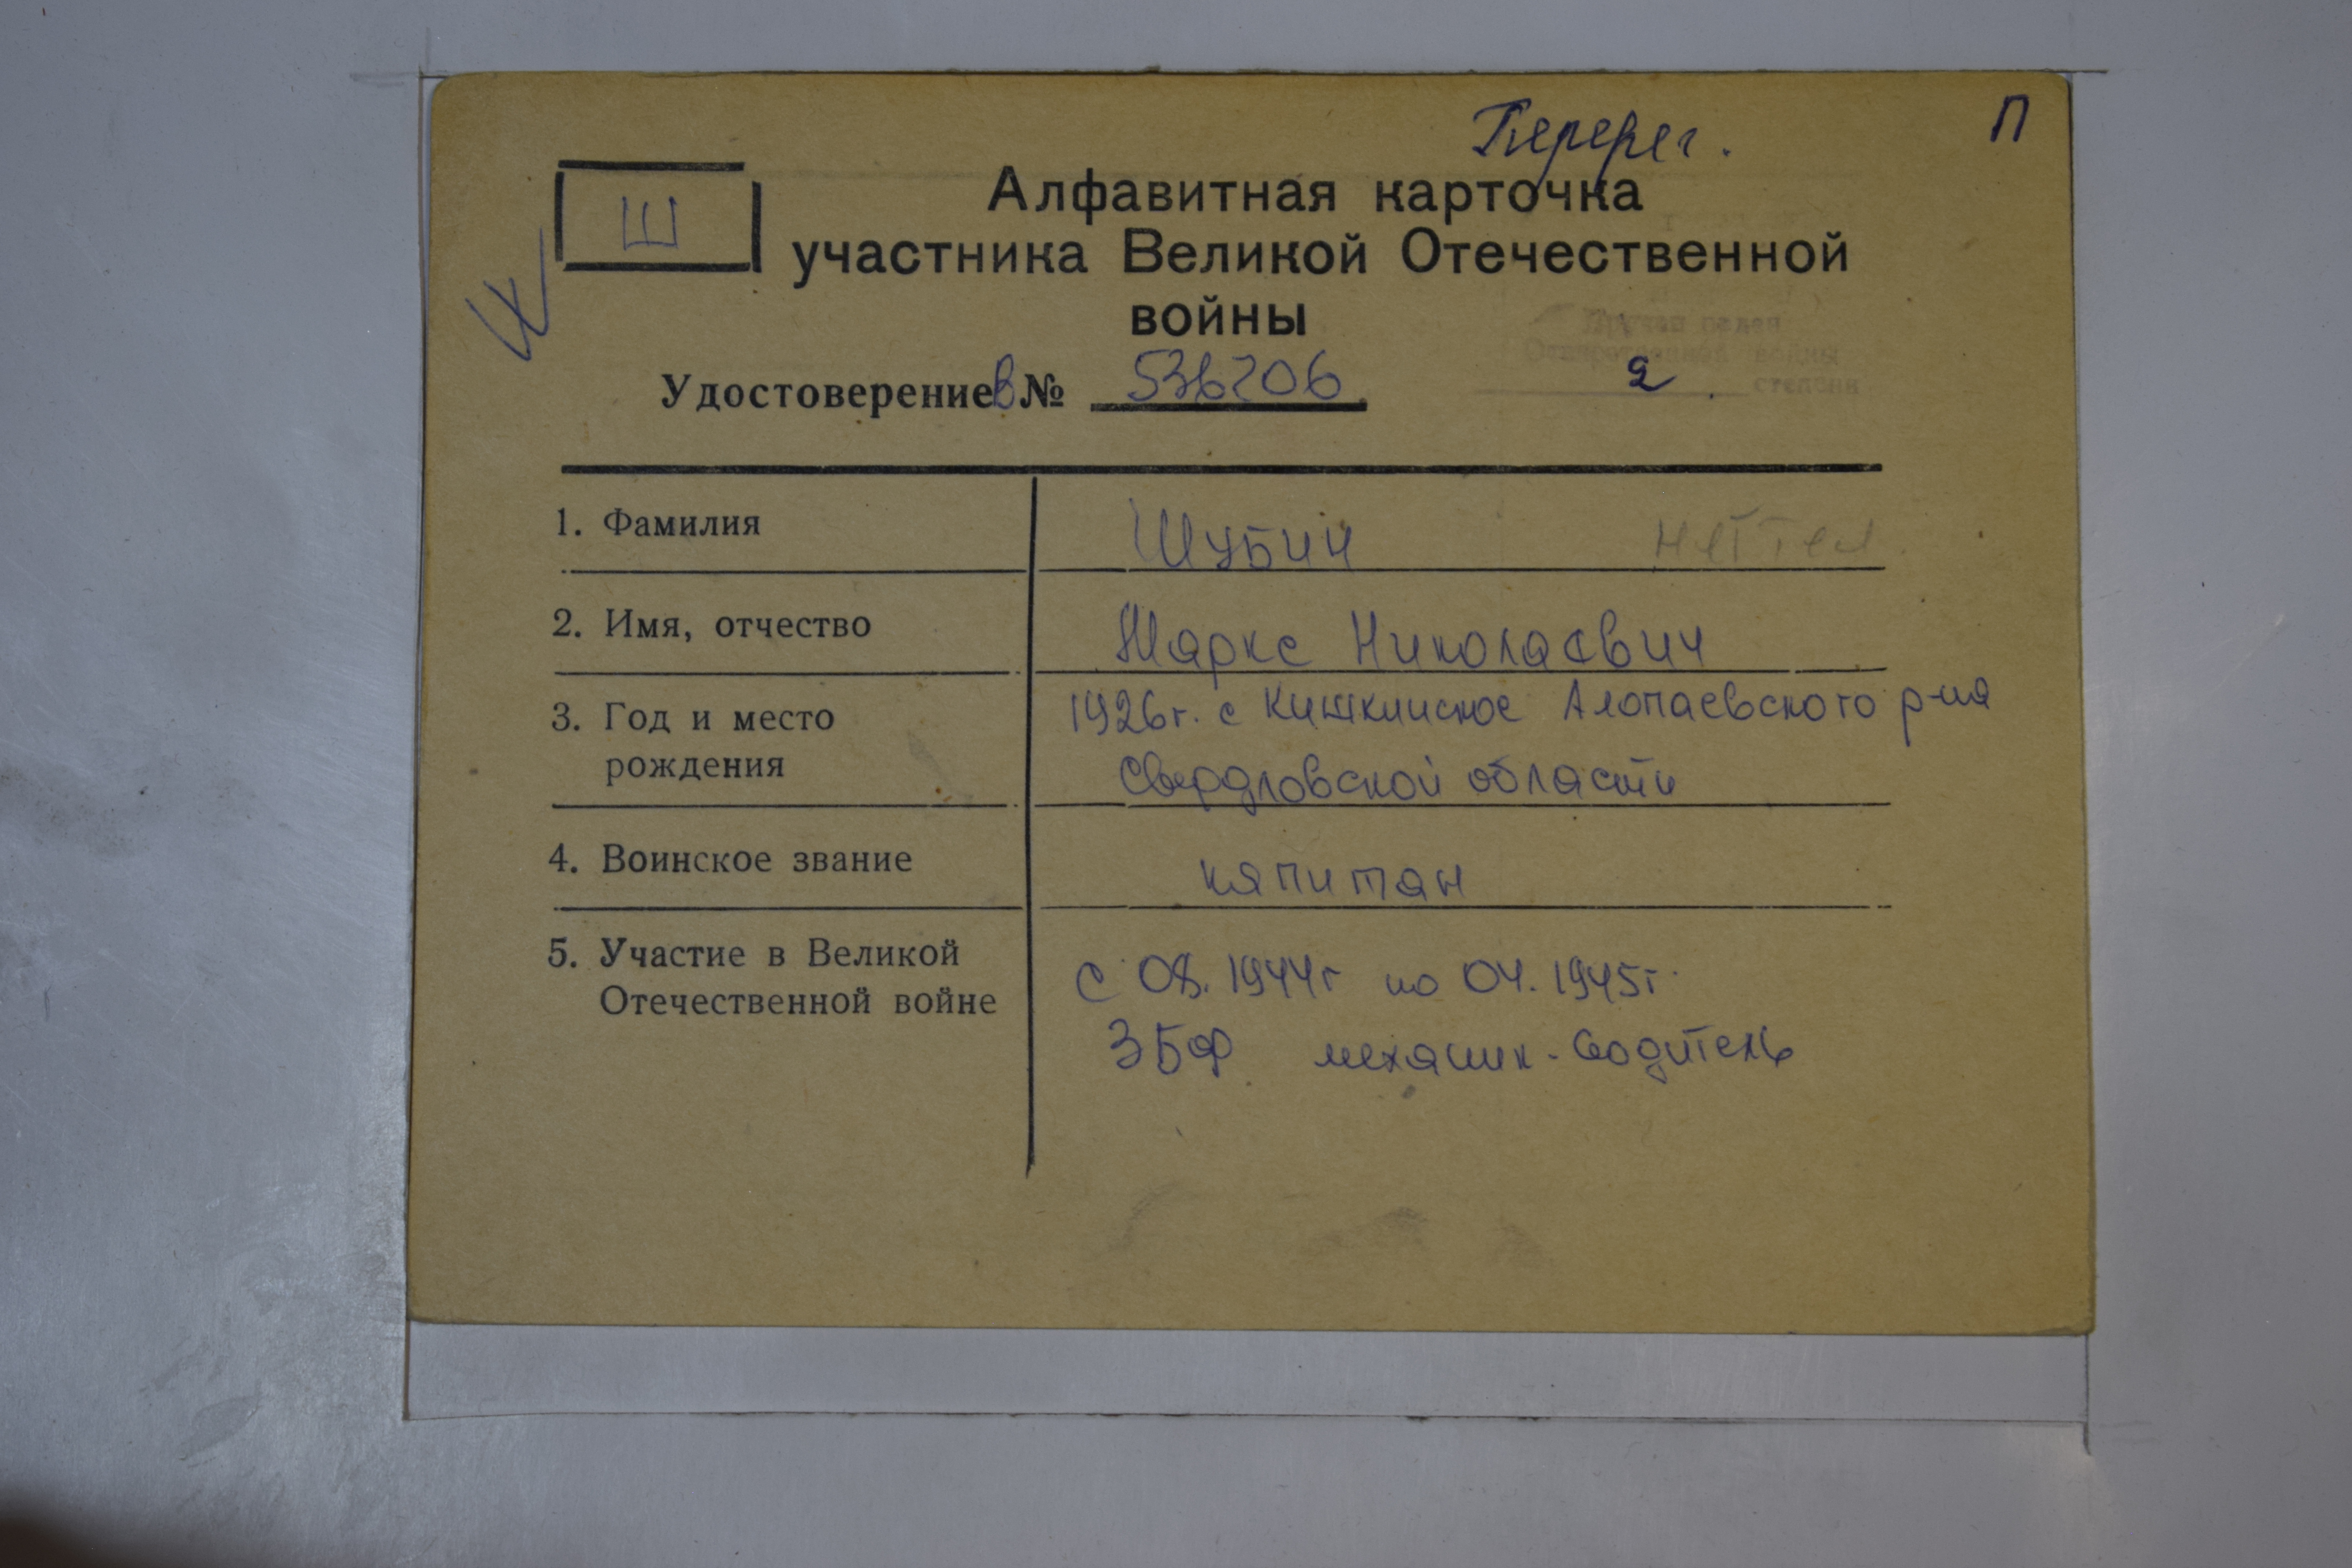 Перерег. П
Ш
Алфавитная карточка
участника Великой Отечественной
войны
Удостоверение В № 536206
Орден
Отечественной войны
2 степени
1. Фамилия Шубин нет тел
2. Имя, отчество Маркс Николаевич
3. Год и место 1926г. с Кишкинское Алопаевского р-на
рождения Свердловской области
4. Воинское звание капитан
5. Участие в Великой с 08.1944г по 04.1945г.
Отечественной войне 3БФ механик-водитель